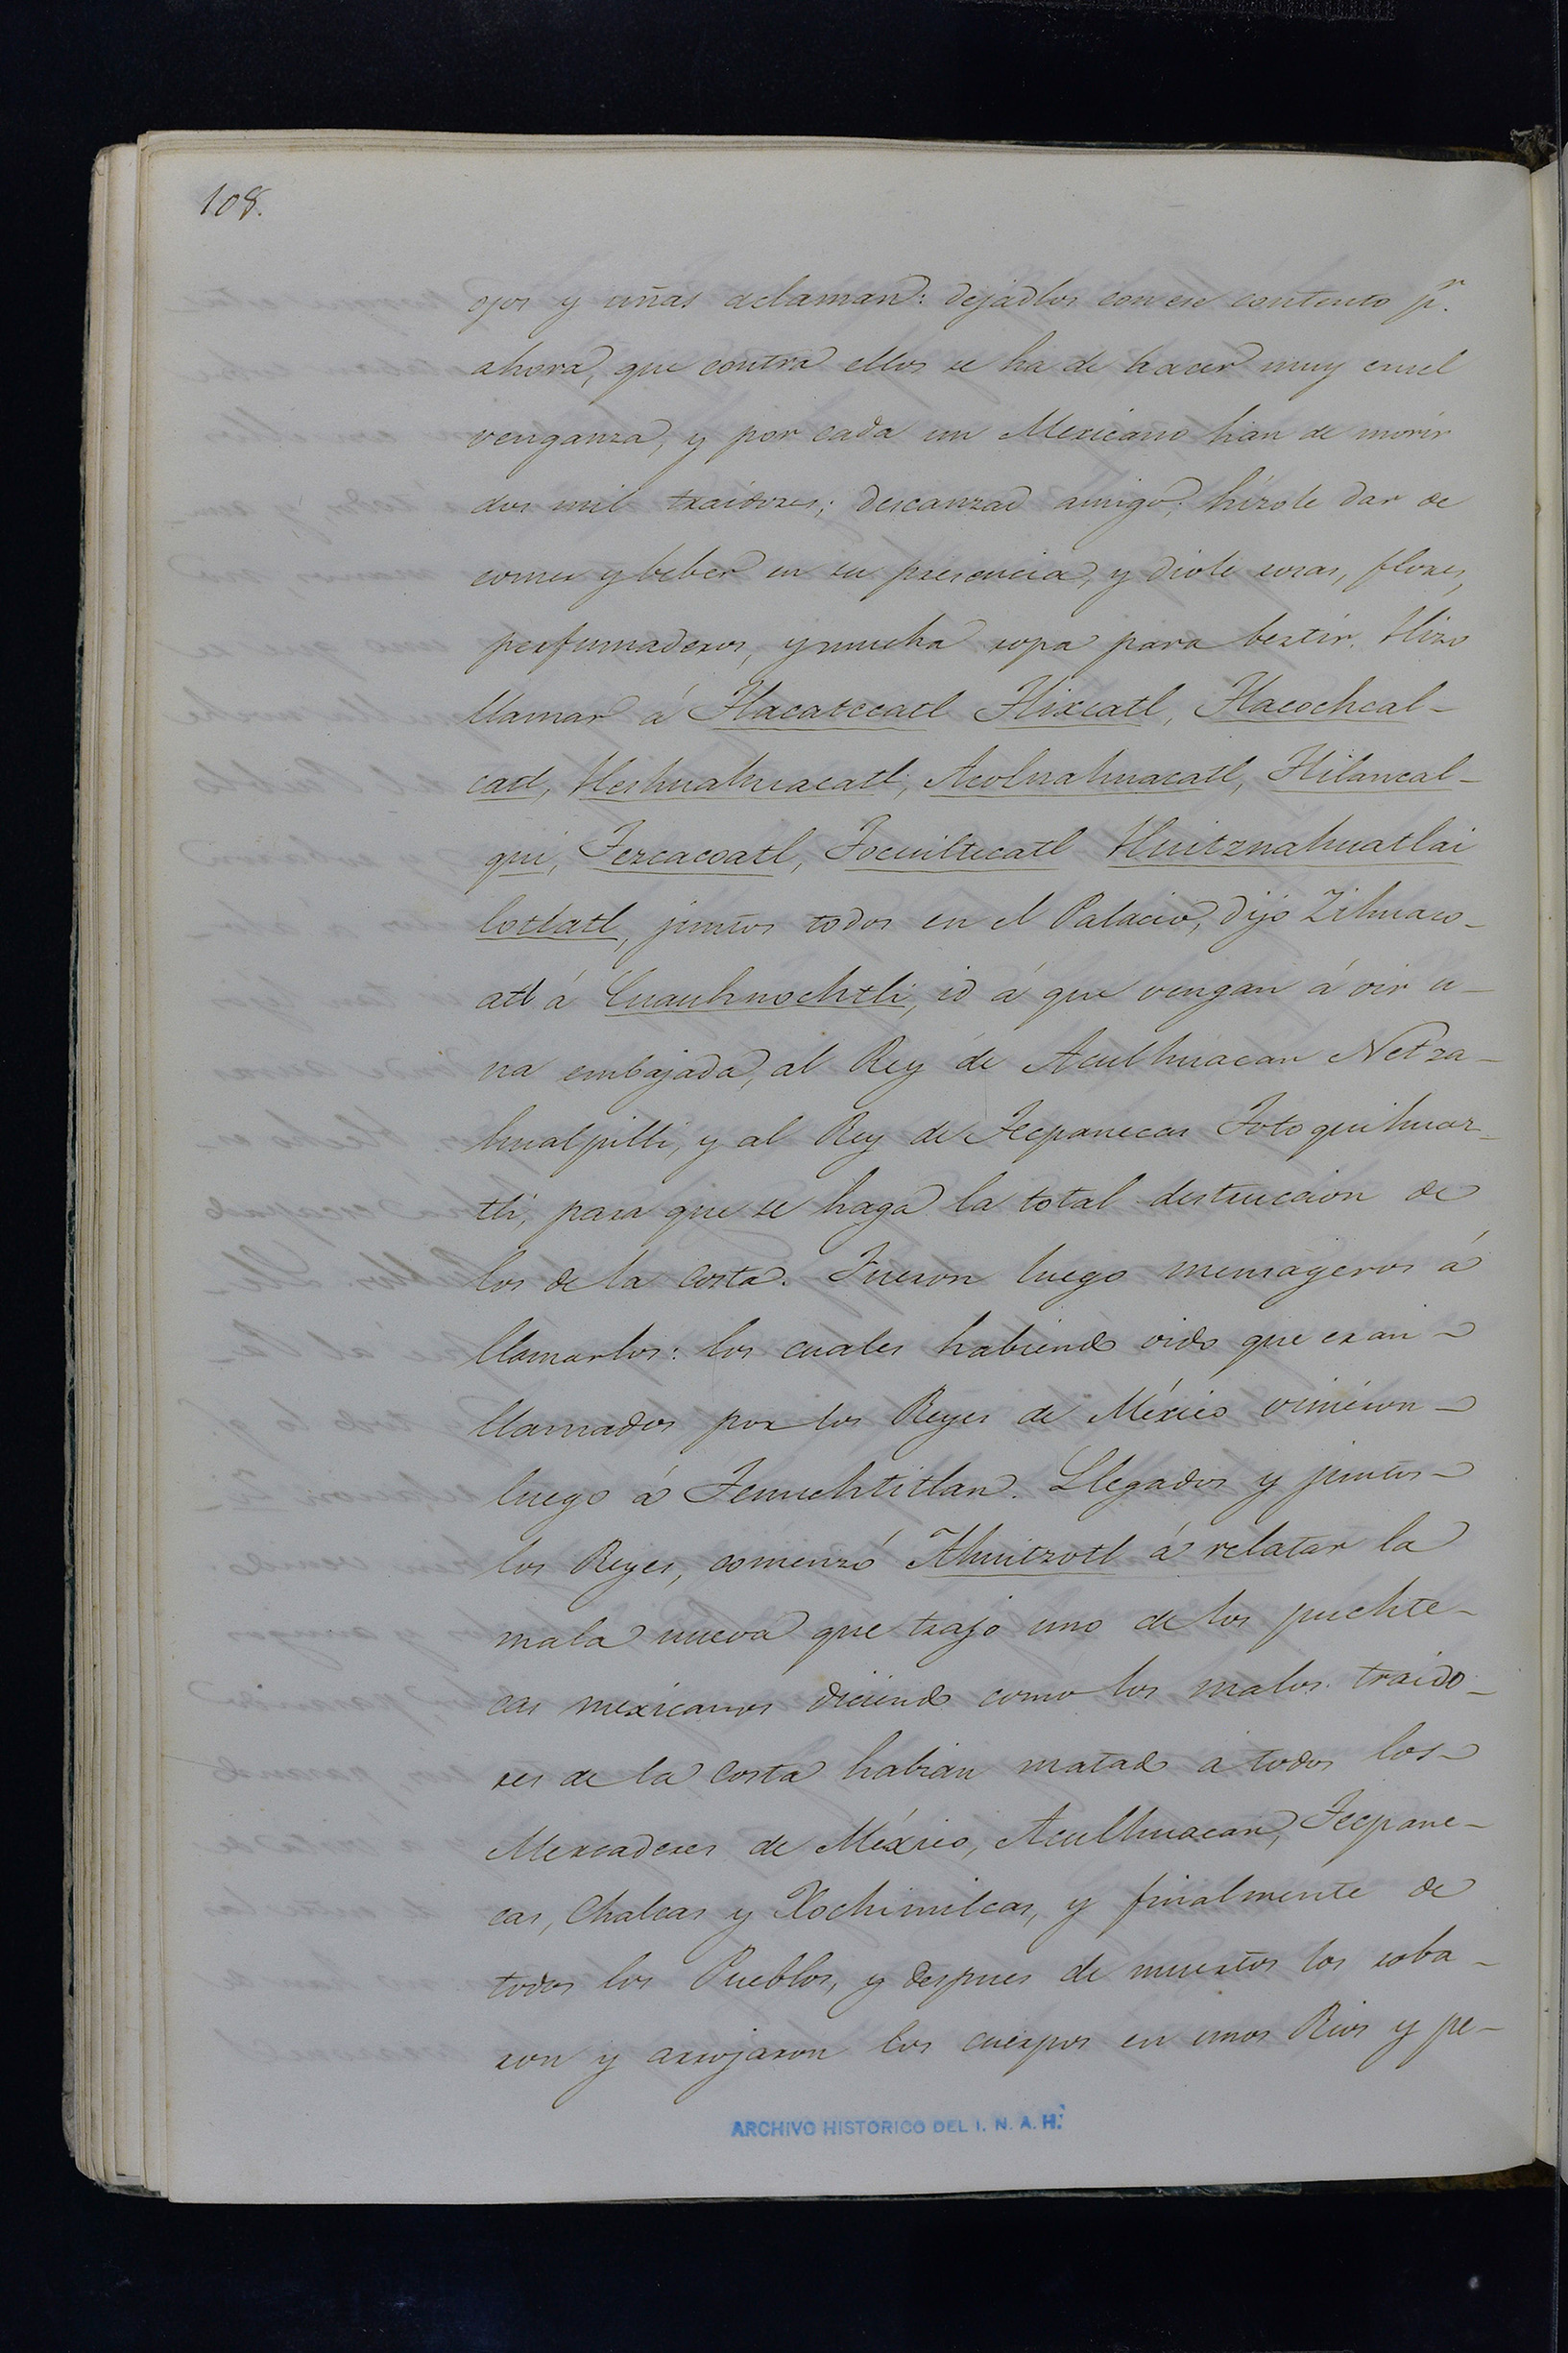 108.
ojos y uñas aclaman: dejadlos con ese contento pr.
ahora, que contra ellos se ha de hacer muy cruel
venganza, y por cada un Mexicano han de morir
dos mil traidores; descanzad amigo; hízole dar de
comer y beber en su presencia, y diole rosas, flores,
perfumaderos, y mucha ropa para bestir. Hizo
llamar á Tlacateccatl Tlixcatl, Tlacochcal-
catl, Heshuahuacatl, Acolnahuacatl, Tlilancal-
qui, Tezcacoatl, Tocuiltecatl Huitznahuatlai
lotlatl, juntos todos en el Palacio, dijo Zihuaco-
atl á Cuauhnochtli, id á que vengan á oir u-
na embajada, al Rey de Aculhuacan Netza-
hualpilli, y al Rey de Tecpanecas Totoquihuaz-
tli, para que se haga la total destruccion de
los de la Costa. Fueron luego mensageros á
llamarlos: los cuales habiendo oido que eran-
llamados por los Reyes de México viniéron-
luego á Tenuchtitlan. Llegados y juntos-
los Reyes, comenzó Ahuitzotl á relatar la
mala nueva que trajo uno de los puchte-
cas mexicanos diciendo como los malos traido-
res de la Costa habian matado a todos los-
Mercaderes de México, Aculhuacan, Tecpane-
cas, Chalcas y Xochimilcas, y finalmente de
todos los Pueblos, y despues de muertos los roba-
ron y arrojaron los cuerpos en unos Rios y pe-
ARCHIVO HISTORICO DEL I. N. A. H.